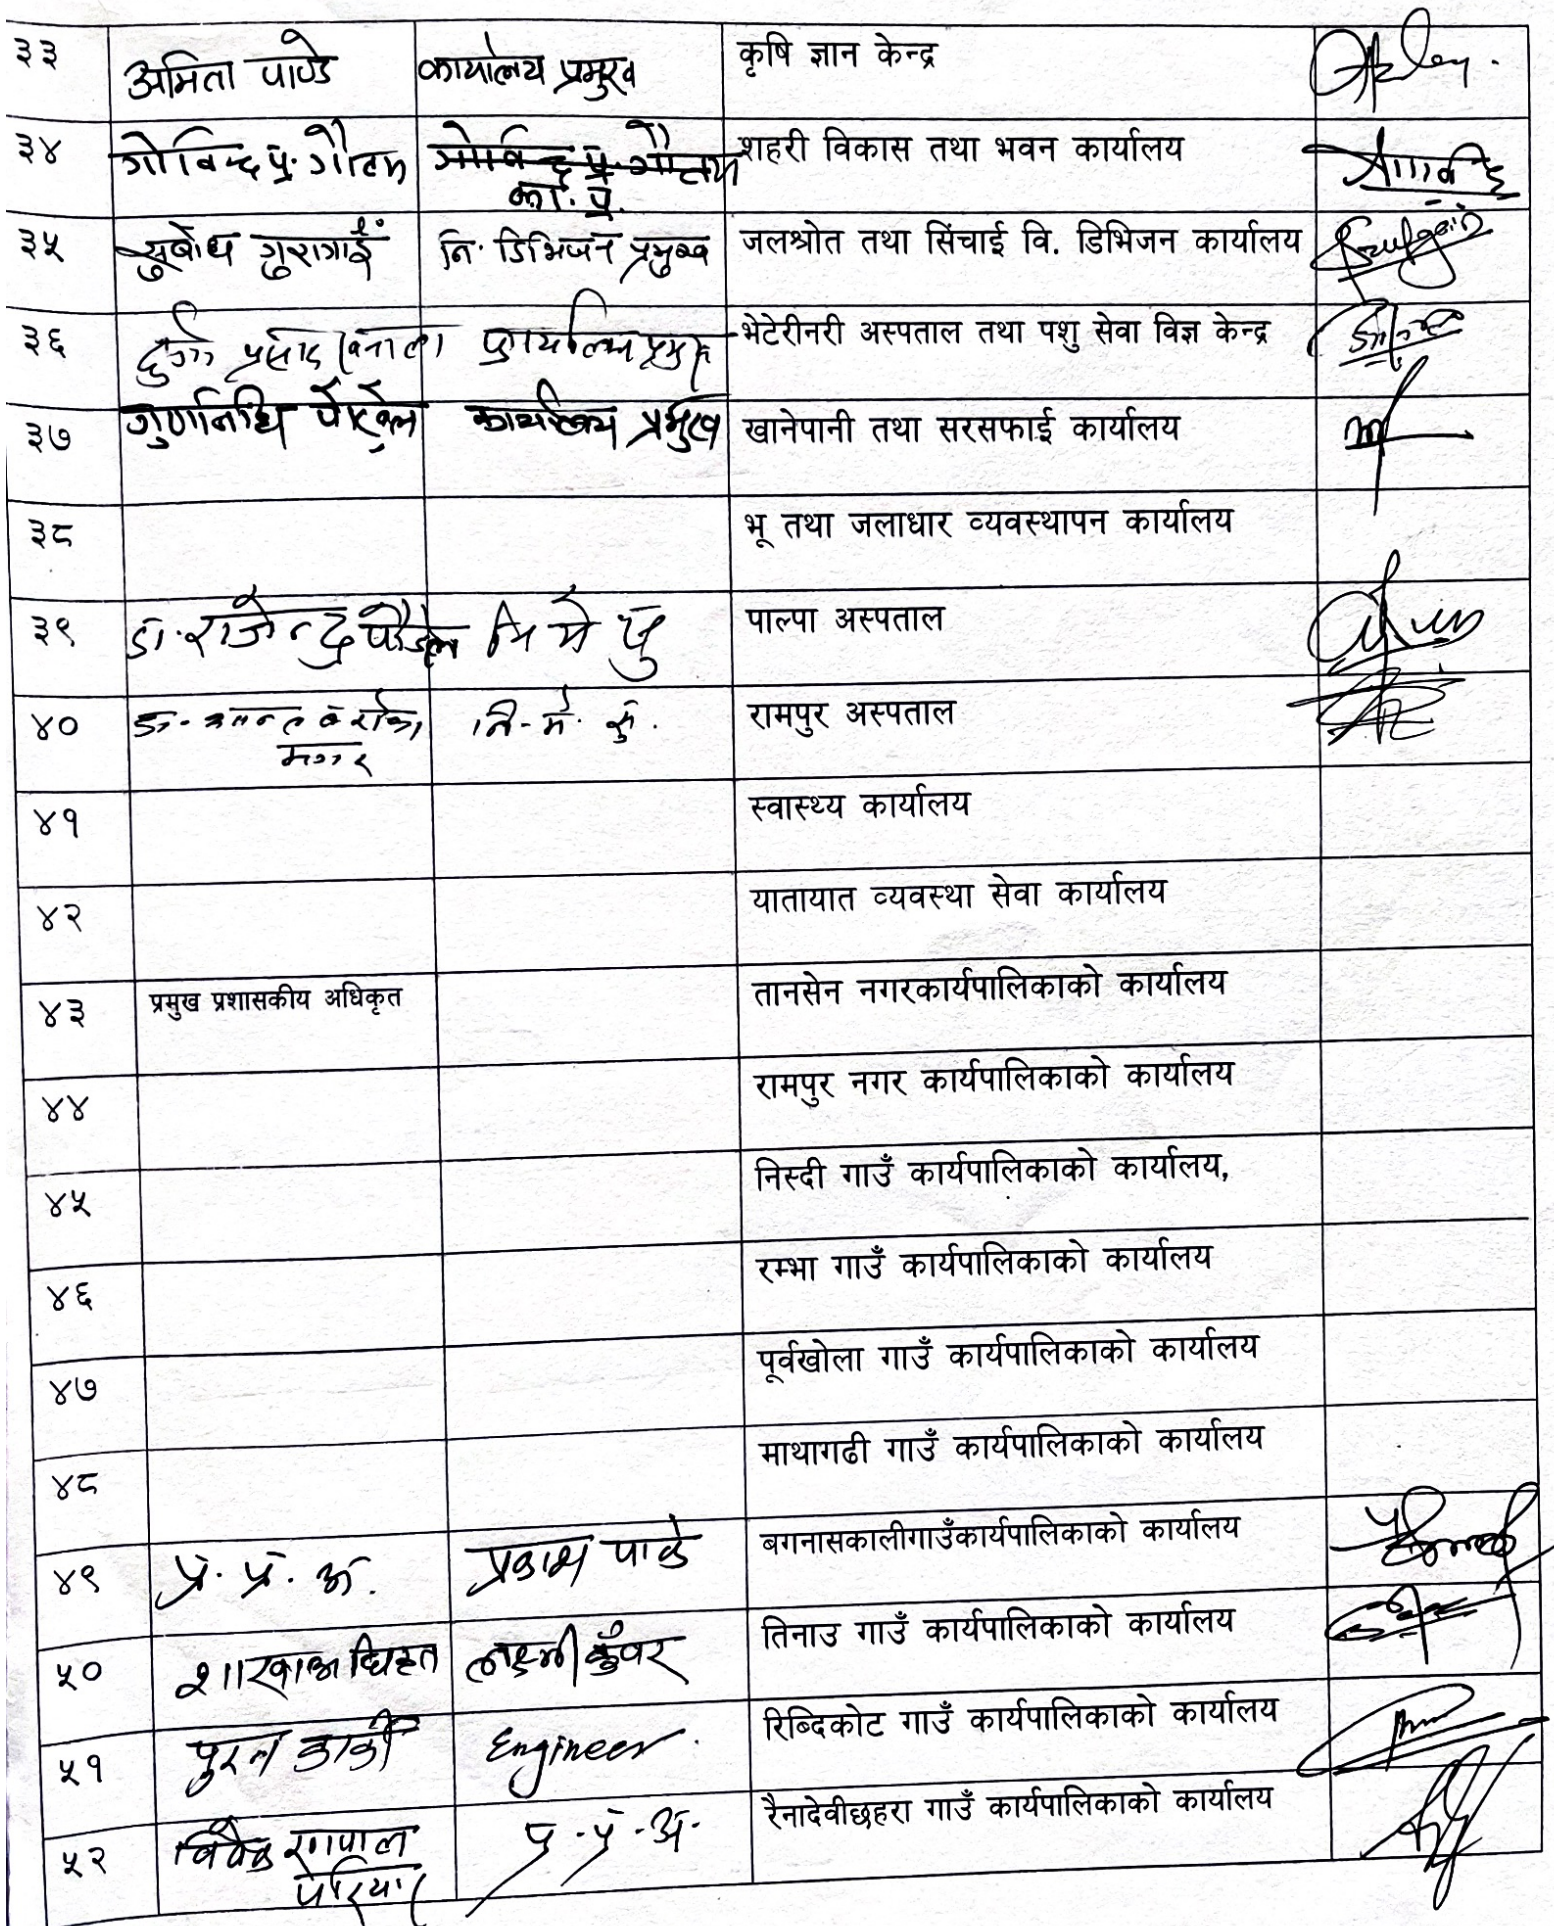 ३३ अमिता पाण्डे कार्यालय प्रमुख कृषि ज्ञान केन्द्र
३४ गोविन्द प्र. गौतम गोविन्द प्र. गौतम शहरी विकास तथा भवन कार्यालय
का. प्र.
३५ सुबोध गुरागाईं नि. डिभिजन प्रमुख जलश्रोत तथा सिंचाई वि. डिभिजन कार्यालय
३६ प्रसाद कार्यालय प्रमुख भेटेरीनरी अस्पताल तथा पशु सेवा विज्ञ केन्द्र
३७ गुणनिधि पोख्रेल कार्यालय प्रमुख खानेपानी तथा सरसफाई कार्यालय
३८ भू तथा जलाधार व्यवस्थापन कार्यालय
३९ डा. राजेन्द्र पौडेल नि मे सु पाल्पा अस्पताल
४० डा. नि. मे. सु. रामपुर अस्पताल
मगर
४१ स्वास्थ्य कार्यालय
४२ यातायात व्यवस्था सेवा कार्यालय
४३ प्रमुख प्रशासकीय अधिकृत तानसेन नगरकार्यपालिकाको कार्यालय
४४ रामपुर नगर कार्यपालिकाको कार्यालय
४५ निस्दी गाउँ कार्यपालिकाको कार्यालय,
४६ रम्भा गाउँ कार्यपालिकाको कार्यालय
४७ पूर्वखोला गाउँ कार्यपालिकाको कार्यालय
४८ माथागढी गाउँ कार्यपालिकाको कार्यालय
४९ प्र. प्र. अ. प्रकाश पाण्डे बगनासकालीगाउँकार्यपालिकाको कार्यालय
५० शाखा अधिकृत लक्ष्मी कुँवर तिनाउ गाउँ कार्यपालिकाको कार्यालय
५१ पुरन कार्की Engineer. रिब्दिकोट गाउँ कार्यपालिकाको कार्यालय
५२ विवेक प्र. प्र. अ. रैनादेवीछहरा गाउँ कार्यपालिकाको कार्यालय
परियार